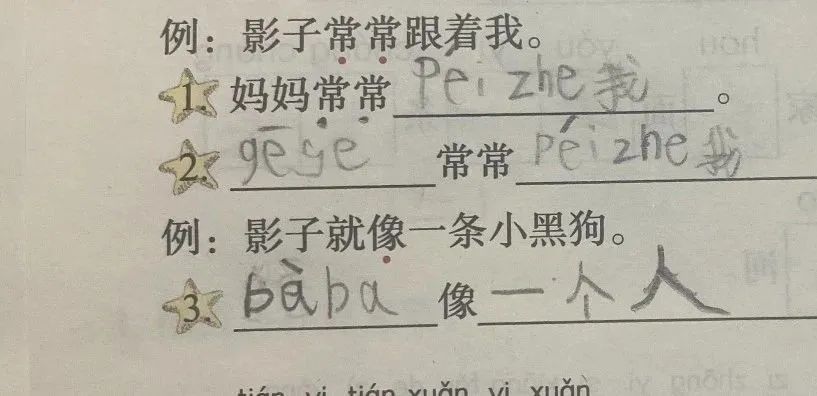 例：影子常常跟着我。
1. 妈妈常常péi zhe 我。
2. gēge常常péi zhe 我
例：影子就像一条小黑狗。
3. bàba像一个人
tián yi tián xuǎn yi xuǎn